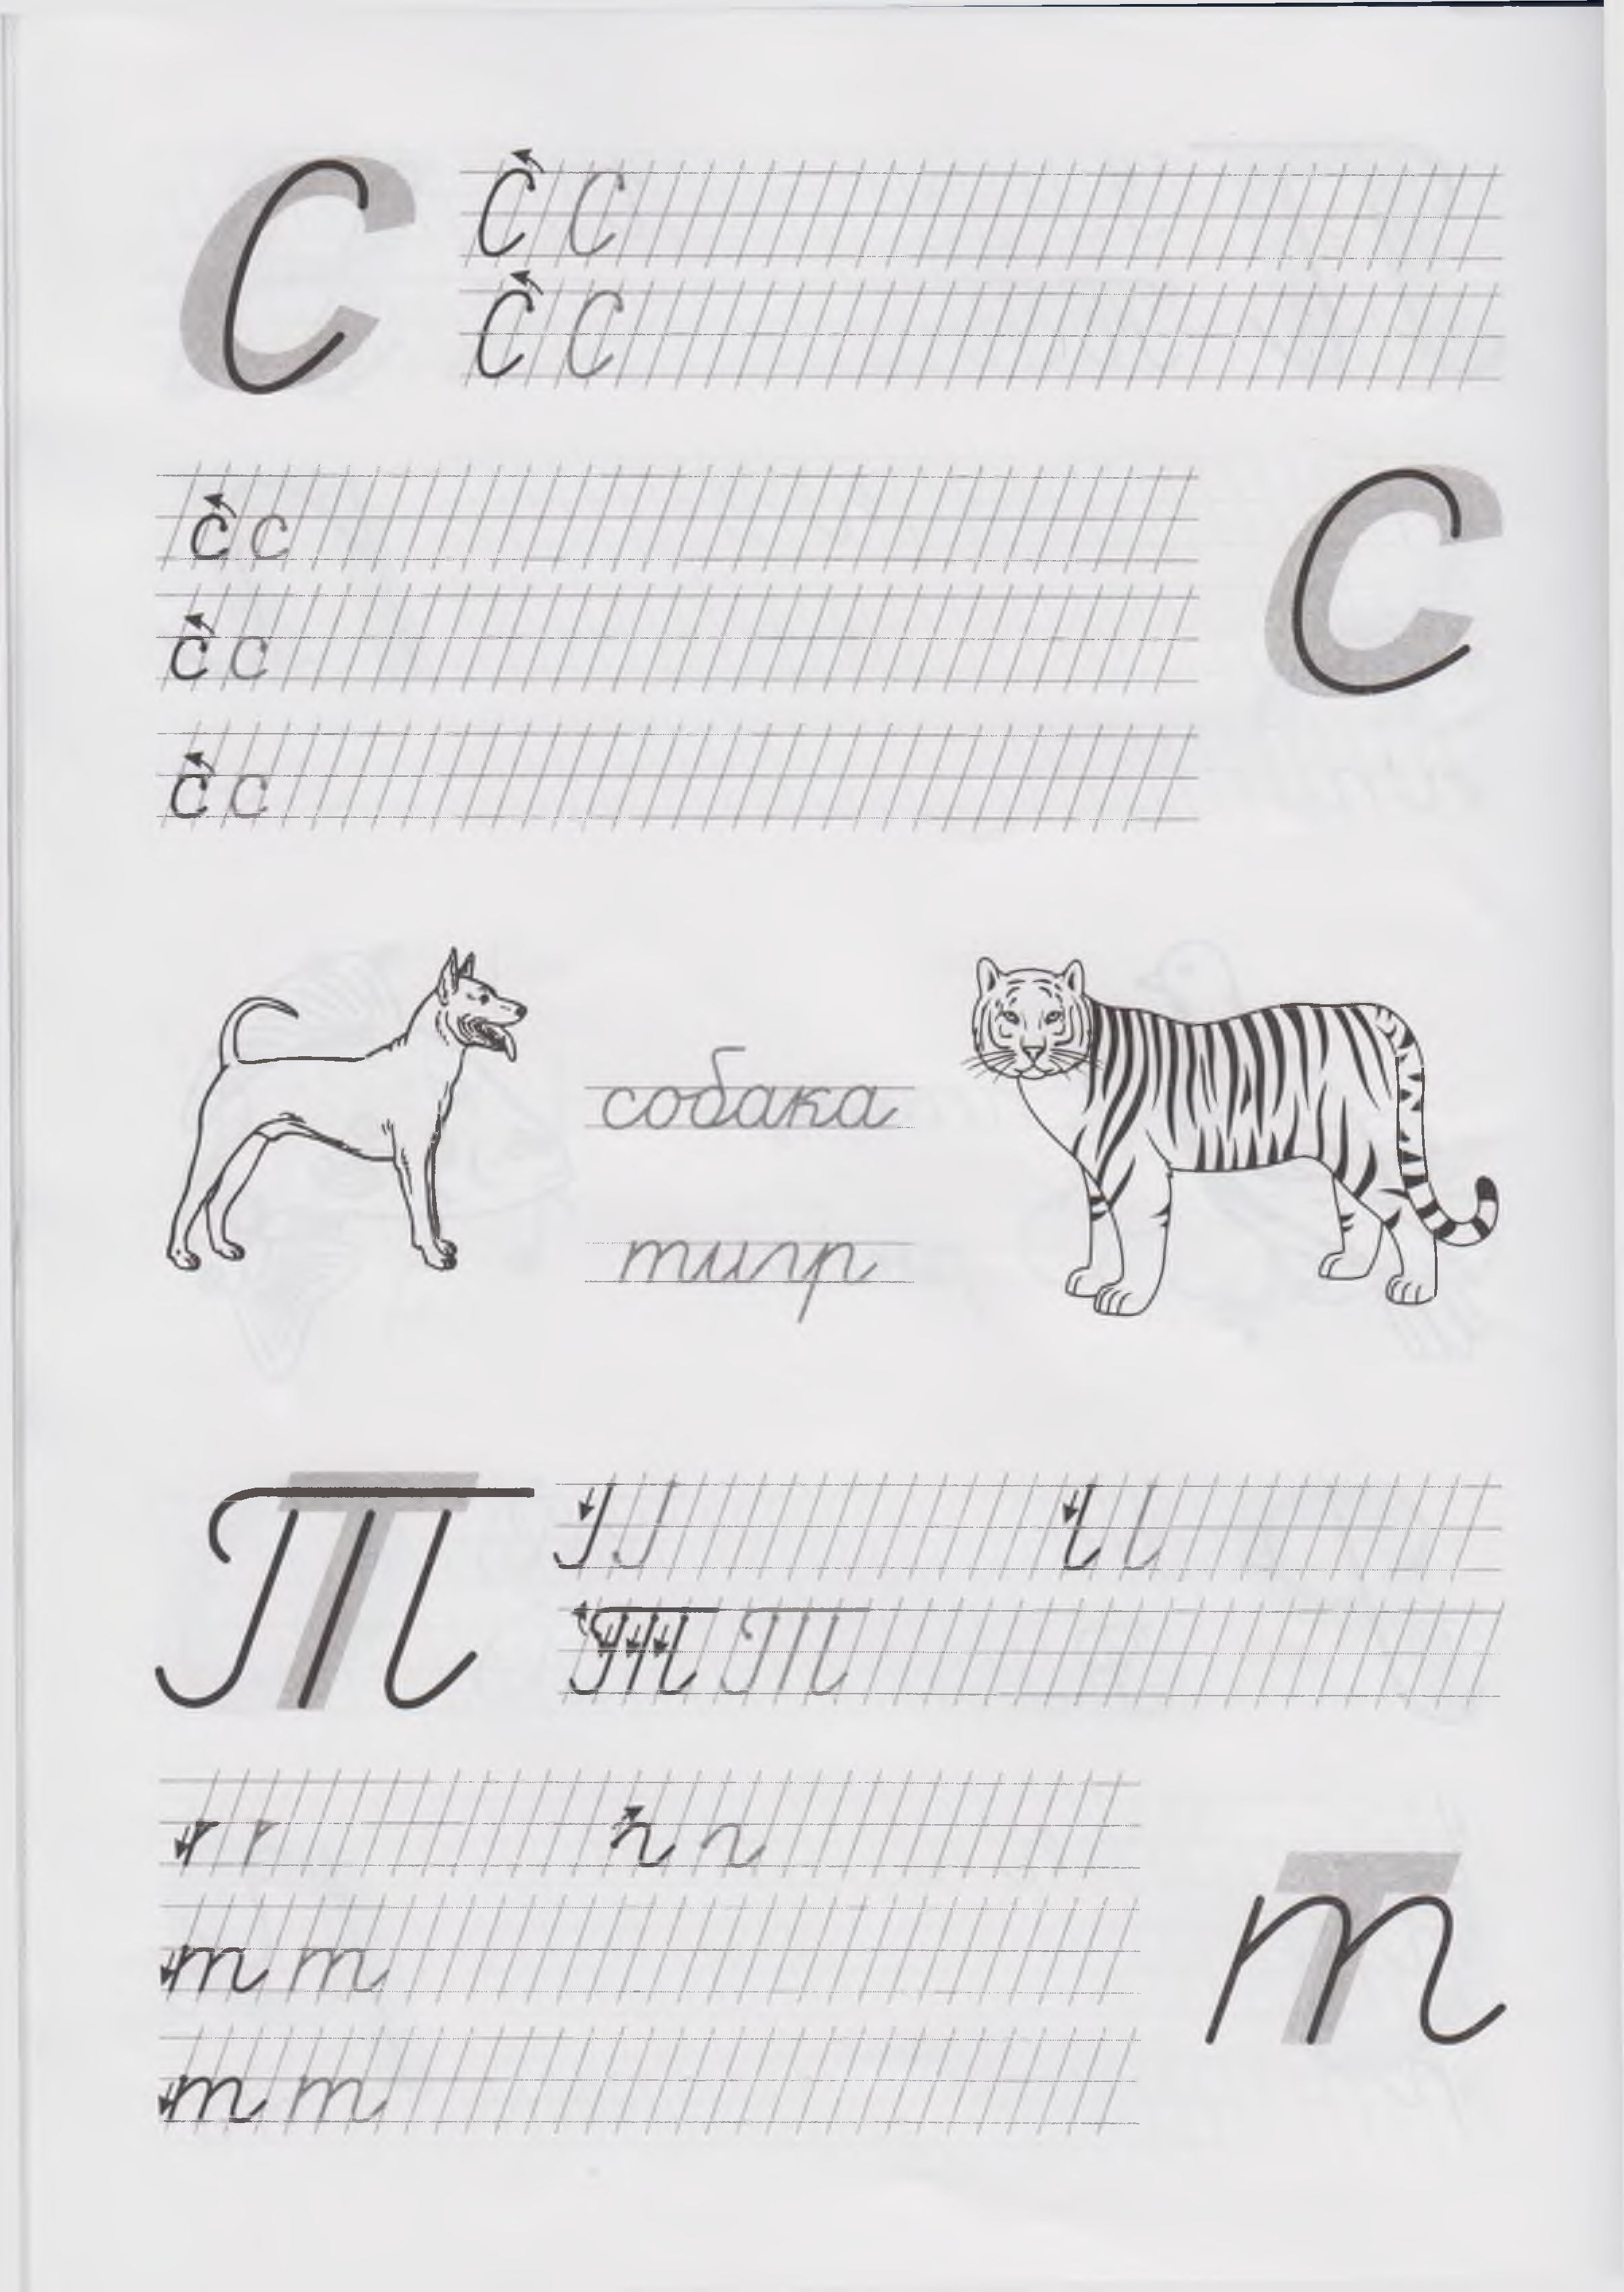 С С С
С С
с с С
с с
с с
собака
тигр
Т
Т Т
т т т
т т